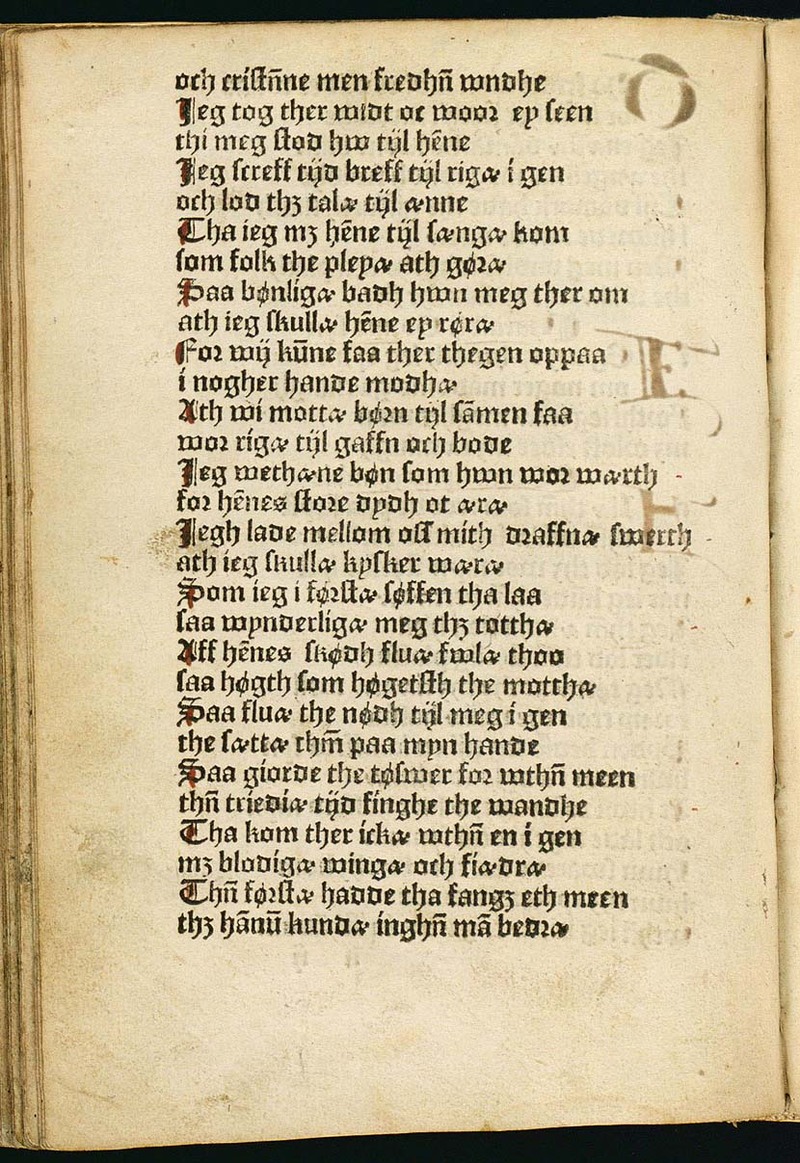 och cristn̄ne men fredhn̄ wndhe
Jeg tog ther widt oc wooꝛ ey seen
thi meg stod hw tijl hēne
Jeg screff tijd breff tijl rigæ i gen
och lod thꝫ talæ tijl ænne
Tha ieg mꝫ hēne tijl sængæ kom
som folk the pleyæ ath gøꝛæ
Saa bønligæ badh hwn meg ther om
ath ieg skullæ hēne ey røræ
Foꝛ wij kūne faa ther thegen oppaa
i nogher hande modhæ
Ath wi mottæ bøꝛn tijl sāmen faa
woꝛ rigæ tijl gaffn och bode
Jeg wethæne bøn som hwn woꝛ wærth
foꝛ hēnes stoꝛe dydh oc æræ
Jegh lade mellom oss mith draffnæ swerth
ath ieg skullæ kysker wæræ
Som ieg i føꝛstæ søffen tha laa
saa wynderligæ meg thꝫ totthæ
Aff hēnes skødh fluæ fwlæ thoo
saa høgth som høgetsth the motthæ
Saa fluæ the nødh tijl meg i gen
the sættæ thm̄ paa myn hānde
Saa giorde the tøswer foꝛ wthn̄ meen
thn̄ triediæ tijd finghe the wandhe
Tha kom ther ickæ wthn̄ en i gen
mꝫ blodigæ wingæ och fiædræ
Thn̄ føꝛstæ hadde tha fangꝫ eth meen
thꝫ hānū kundæ inghn̄ mā bedꝛæ
O
E
E